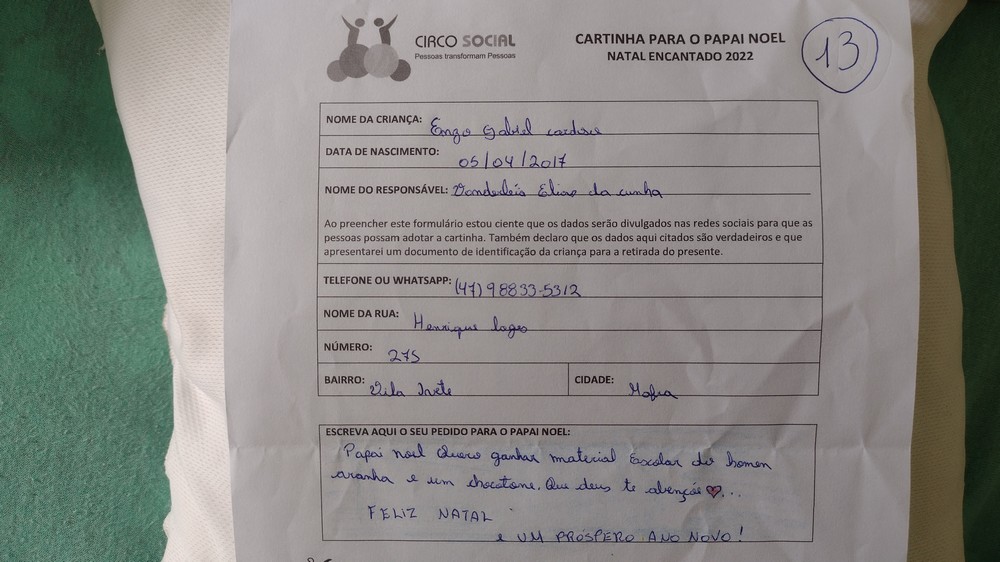 CIRCO SOCIAL
Pessoas transformam Pessoas
CARTINHA PARA O PAPAI NOEL
NATAL ENCANTADO 2022
13
NOME DA CRIANÇA: Enzo Gabriel cardoso
DATA DE NASCIMENTO: 05/04/2017
NOME DO RESPONSÁVEL: Vanderleia Elias da cunha
Ao preencher este formulário estou ciente que os dados serão divulgados nas redes sociais para que as
pessoas possam adotar a cartinha. Também declaro que os dados aqui citados são verdadeiros e que
apresentarei um documento de identificação da criança para a retirada do presente.
TELEFONE OU WHATSAPP: (47) 98833-5312
NOME DA RUA: Henrique lages
NÚMERO: 275
BAIRRO: Vila Ivete CIDADE: Mafra
ESCREVA AQUI O SEU PEDIDO PARA O PAPAI NOEL:
Papai noel Quero ganhar material Escolar do homem
aranha e um chocotone. Que deus te abençoe ♥...
FELIZ NATAL
e UM PRÓSPERO ANO NOVO!